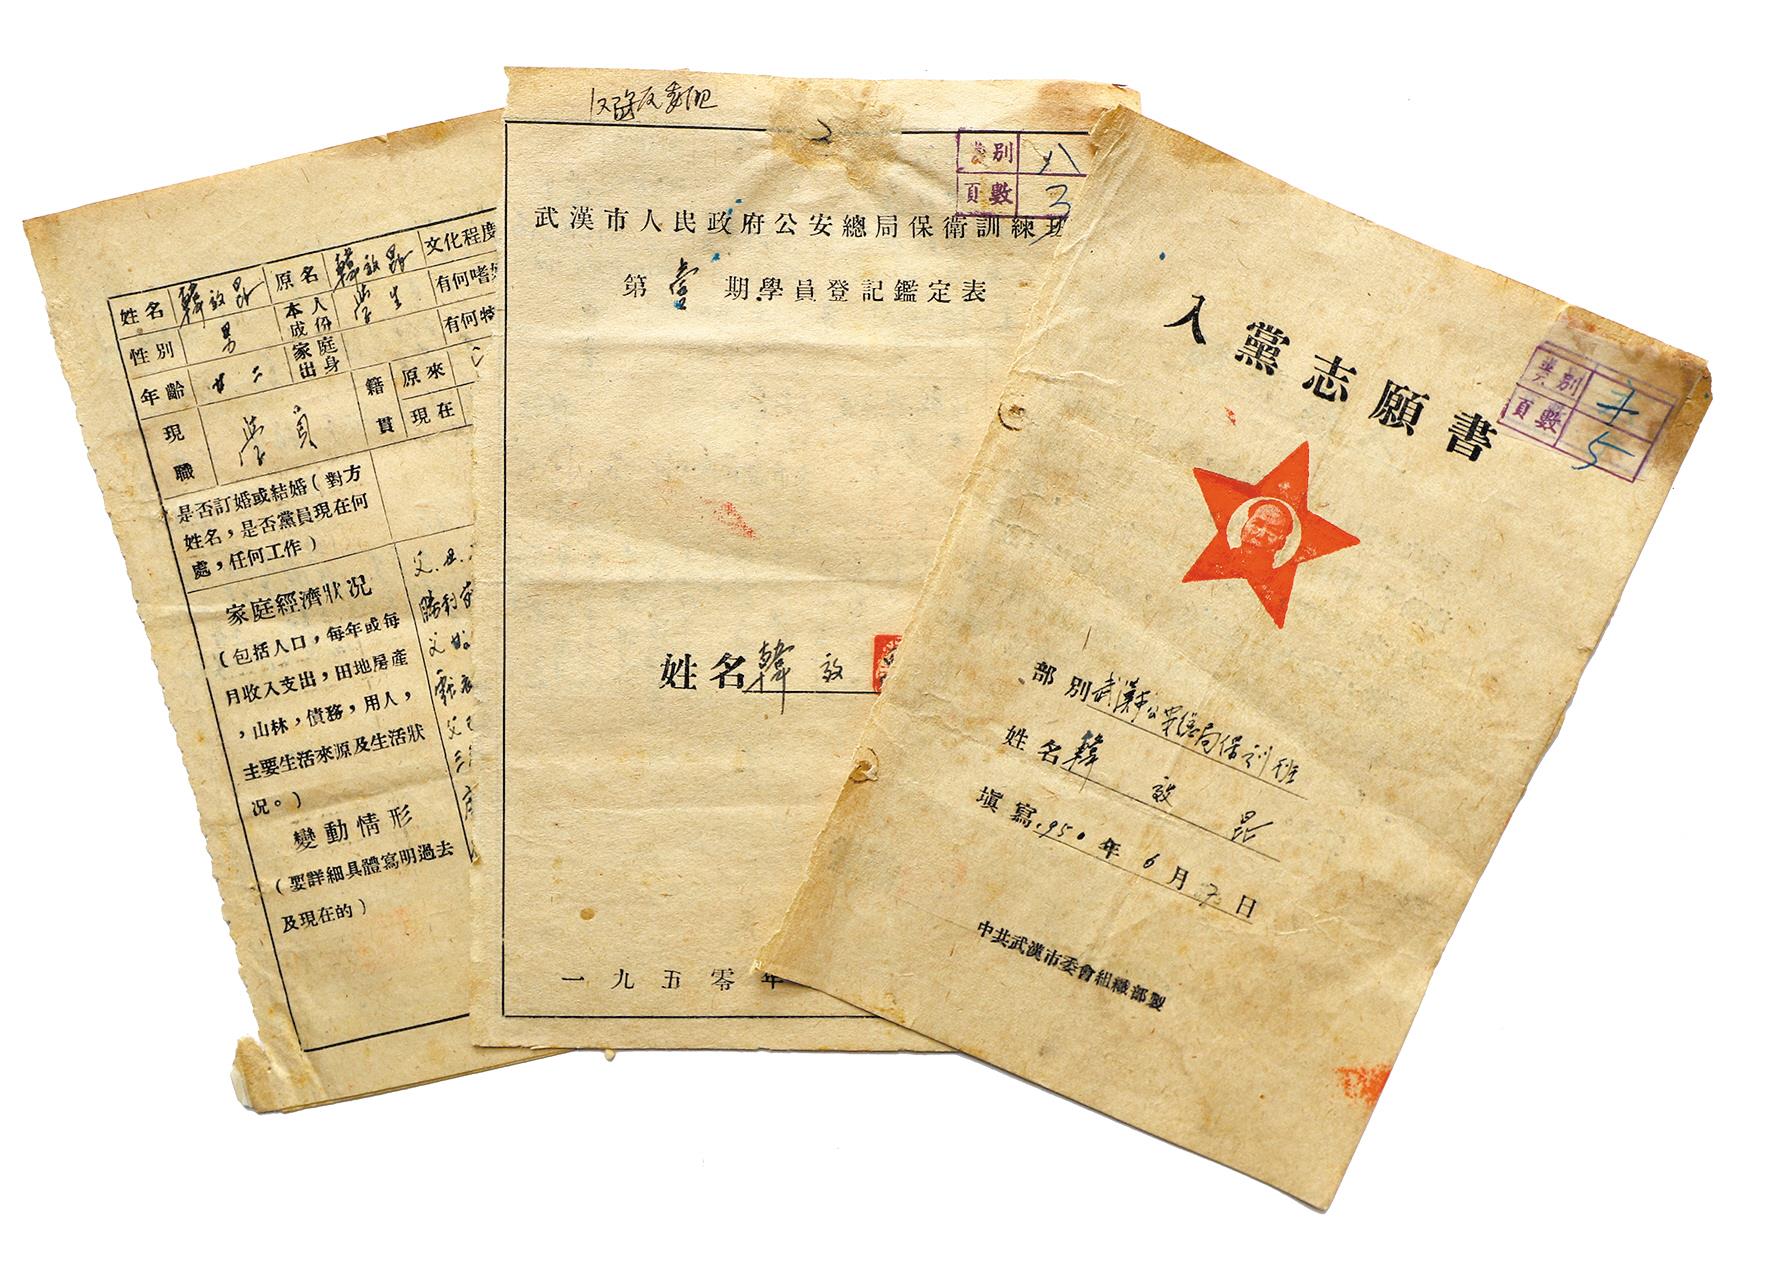 姓名 韓效昆 原名 韓效昆 文化程度
性別 男 本人成份 学生 有何嗜
年齡 廿二 家庭出身 有何特
現職 学員 籍貫 原來
現在
是否訂婚或結婚(對方
姓名,是否黨員現在何
處,任何工作)
家庭經濟狀況
(包括人口,每年或每
月收入支出,田地房產
,山林,債務,用人,
主要生活來源及生活狀
況。)
變動情形
(要詳細具體寫明過去
及現在的)
父
2
類別 八
頁數 3
武漢市人民政府公安總局保衛訓練班
第壹期學員登記鑑定表
姓名 韓效
一九五零年
入黨志願書
類別
頁數 5
部別 武漢市公安總局保訓班
姓名 韓效昆
塡寫 1950年6月7日
中共武漢市委會組織部製